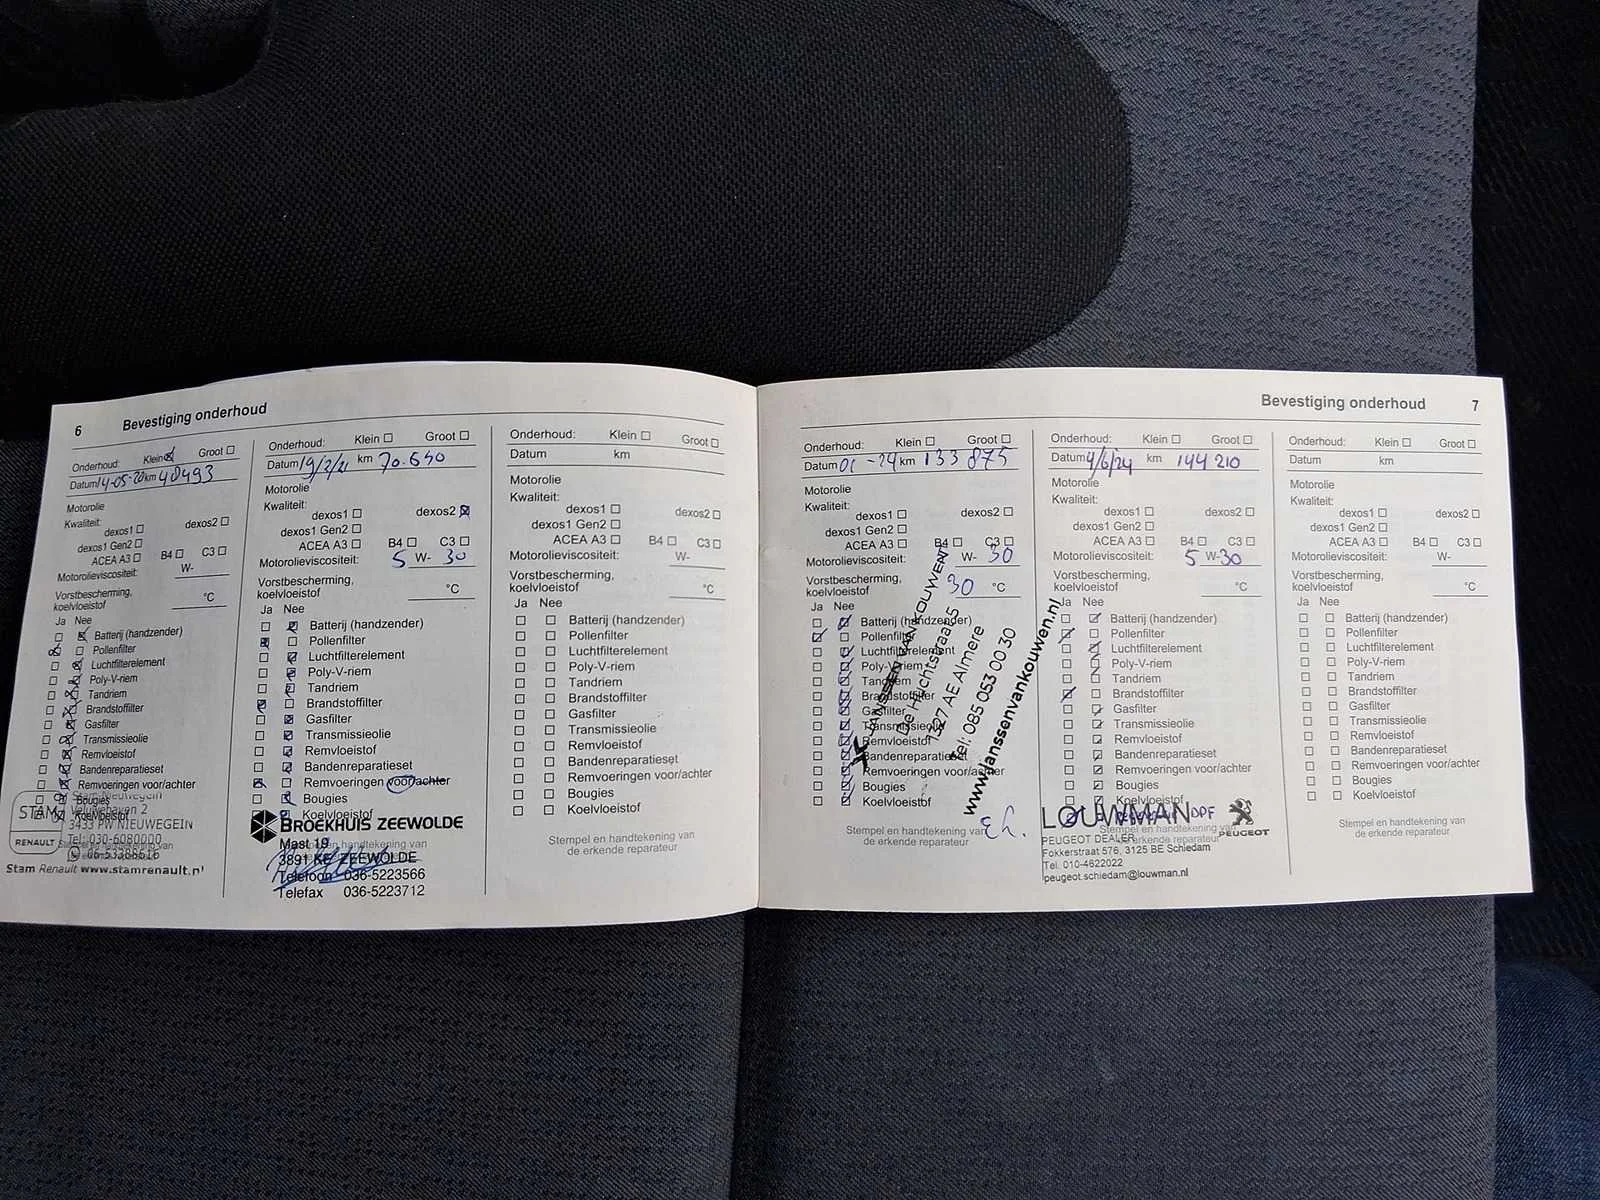 6 Bevestiging onderhoud
Onderhoud: Klein Groot
Datum 14-05-20 km 48493
Motorolie
Kwaliteit:
dexos1 dexos2
dexos1 Gen2
ACEA A3 B4 C3
Motorolieviscositeit: W-
Vorstbescherming,
koelvloeistof °C
Ja Nee
Batterij (handzender)
Pollenfilter
Luchtfilterelement
Poly-V-riem
Tandriem
Brandstoffilter
Gasfilter
Transmissieolie
Remvloeistof
Bandenreparatieset
Remvoeringen voor/achter
Bougies
Koelvloeistof
STAM
RENAULT
Stam Nieuwegein
Veluwehaven 2
3433 PW NIEUWEGEIN
Tel: 030-6080000
06-53388616
Stam Renault www.stamrenault.nl
Onderhoud: Klein Groot
Datum 19/2/21 km 70.640
Motorolie
Kwaliteit:
dexos1 dexos2
dexos1 Gen2
ACEA A3 B4 C3
Motorolieviscositeit: 5 W- 30
Vorstbescherming,
koelvloeistof °C
Ja Nee
Batterij (handzender)
Pollenfilter
Luchtfilterelement
Poly-V-riem
Tandriem
Brandstoffilter
Gasfilter
Transmissieolie
Remvloeistof
Bandenreparatieset
Remvoeringen voor/achter
Bougies
Koelvloeistof
BROEKHUIS ZEEWOLDE
Mast 19
3891 KE ZEEWOLDE
Telefoon 036-5223566
Telefax 036-5223712
Onderhoud: Klein Groot
Datum km
Motorolie
Kwaliteit:
dexos1 dexos2
dexos1 Gen2
ACEA A3 B4 C3
Motorolieviscositeit: W-
Vorstbescherming,
koelvloeistof °C
Ja Nee
Batterij (handzender)
Pollenfilter
Luchtfilterelement
Poly-V-riem
Tandriem
Brandstoffilter
Gasfilter
Transmissieolie
Remvloeistof
Bandenreparatieset
Remvoeringen voor/achter
Bougies
Koelvloeistof
Stempel en handtekening van
de erkende reparateur
Bevestiging onderhoud 7
Onderhoud: Klein Groot
Datum 01-24 km 133 875
Motorolie
Kwaliteit:
dexos1 dexos2
dexos1 Gen2
ACEA A3 B4 C3
Motorolieviscositeit: W- 30
Vorstbescherming,
koelvloeistof 30 °C
Ja Nee
Batterij (handzender)
Pollenfilter
Luchtfilterelement
Poly-V-riem
Tandriem
Brandstoffilter
Gasfilter
Transmissieolie
Remvloeistof
Bandenreparatieset
Remvoeringen voor/achter
Bougies
Koelvloeistof
Stempel en handtekening van
de erkende reparateur
JANSSEN VAN KOUWEN
1327 AE Almere
Tel: 085 053 00 30
www.janssenvankouwen.nl
Onderhoud: Klein Groot
Datum 4/6/24 km 144 210
Motorolie
Kwaliteit:
dexos1 dexos2
dexos1 Gen2
ACEA A3 B4 C3
Motorolieviscositeit: 5 W-30
Vorstbescherming,
koelvloeistof °C
Ja Nee
Batterij (handzender)
Pollenfilter
Luchtfilterelement
Poly-V-riem
Tandriem
Brandstoffilter
Gasfilter
Transmissieolie
Remvloeistof
Bandenreparatieset
Remvoeringen voor/achter
Bougies
Koelvloeistof
DPF
LOUWMAN
PEUGEOT
Stempel en handtekening van
de erkende reparateur
PEUGEOT DEALER
Fokkerstraat 576, 3125 BE Schiedam
Tel. 010-4622022
peugeot.schiedam@louwman.nl
Onderhoud: Klein Groot
Datum km
Motorolie
Kwaliteit:
dexos1 dexos2
dexos1 Gen2
ACEA A3 B4 C3
Motorolieviscositeit: W-
Vorstbescherming,
koelvloeistof °C
Ja Nee
Batterij (handzender)
Pollenfilter
Luchtfilterelement
Poly-V-riem
Tandriem
Brandstoffilter
Gasfilter
Transmissieolie
Remvloeistof
Bandenreparatieset
Remvoeringen voor/achter
Bougies
Koelvloeistof
Stempel en handtekening van
de erkende reparateur